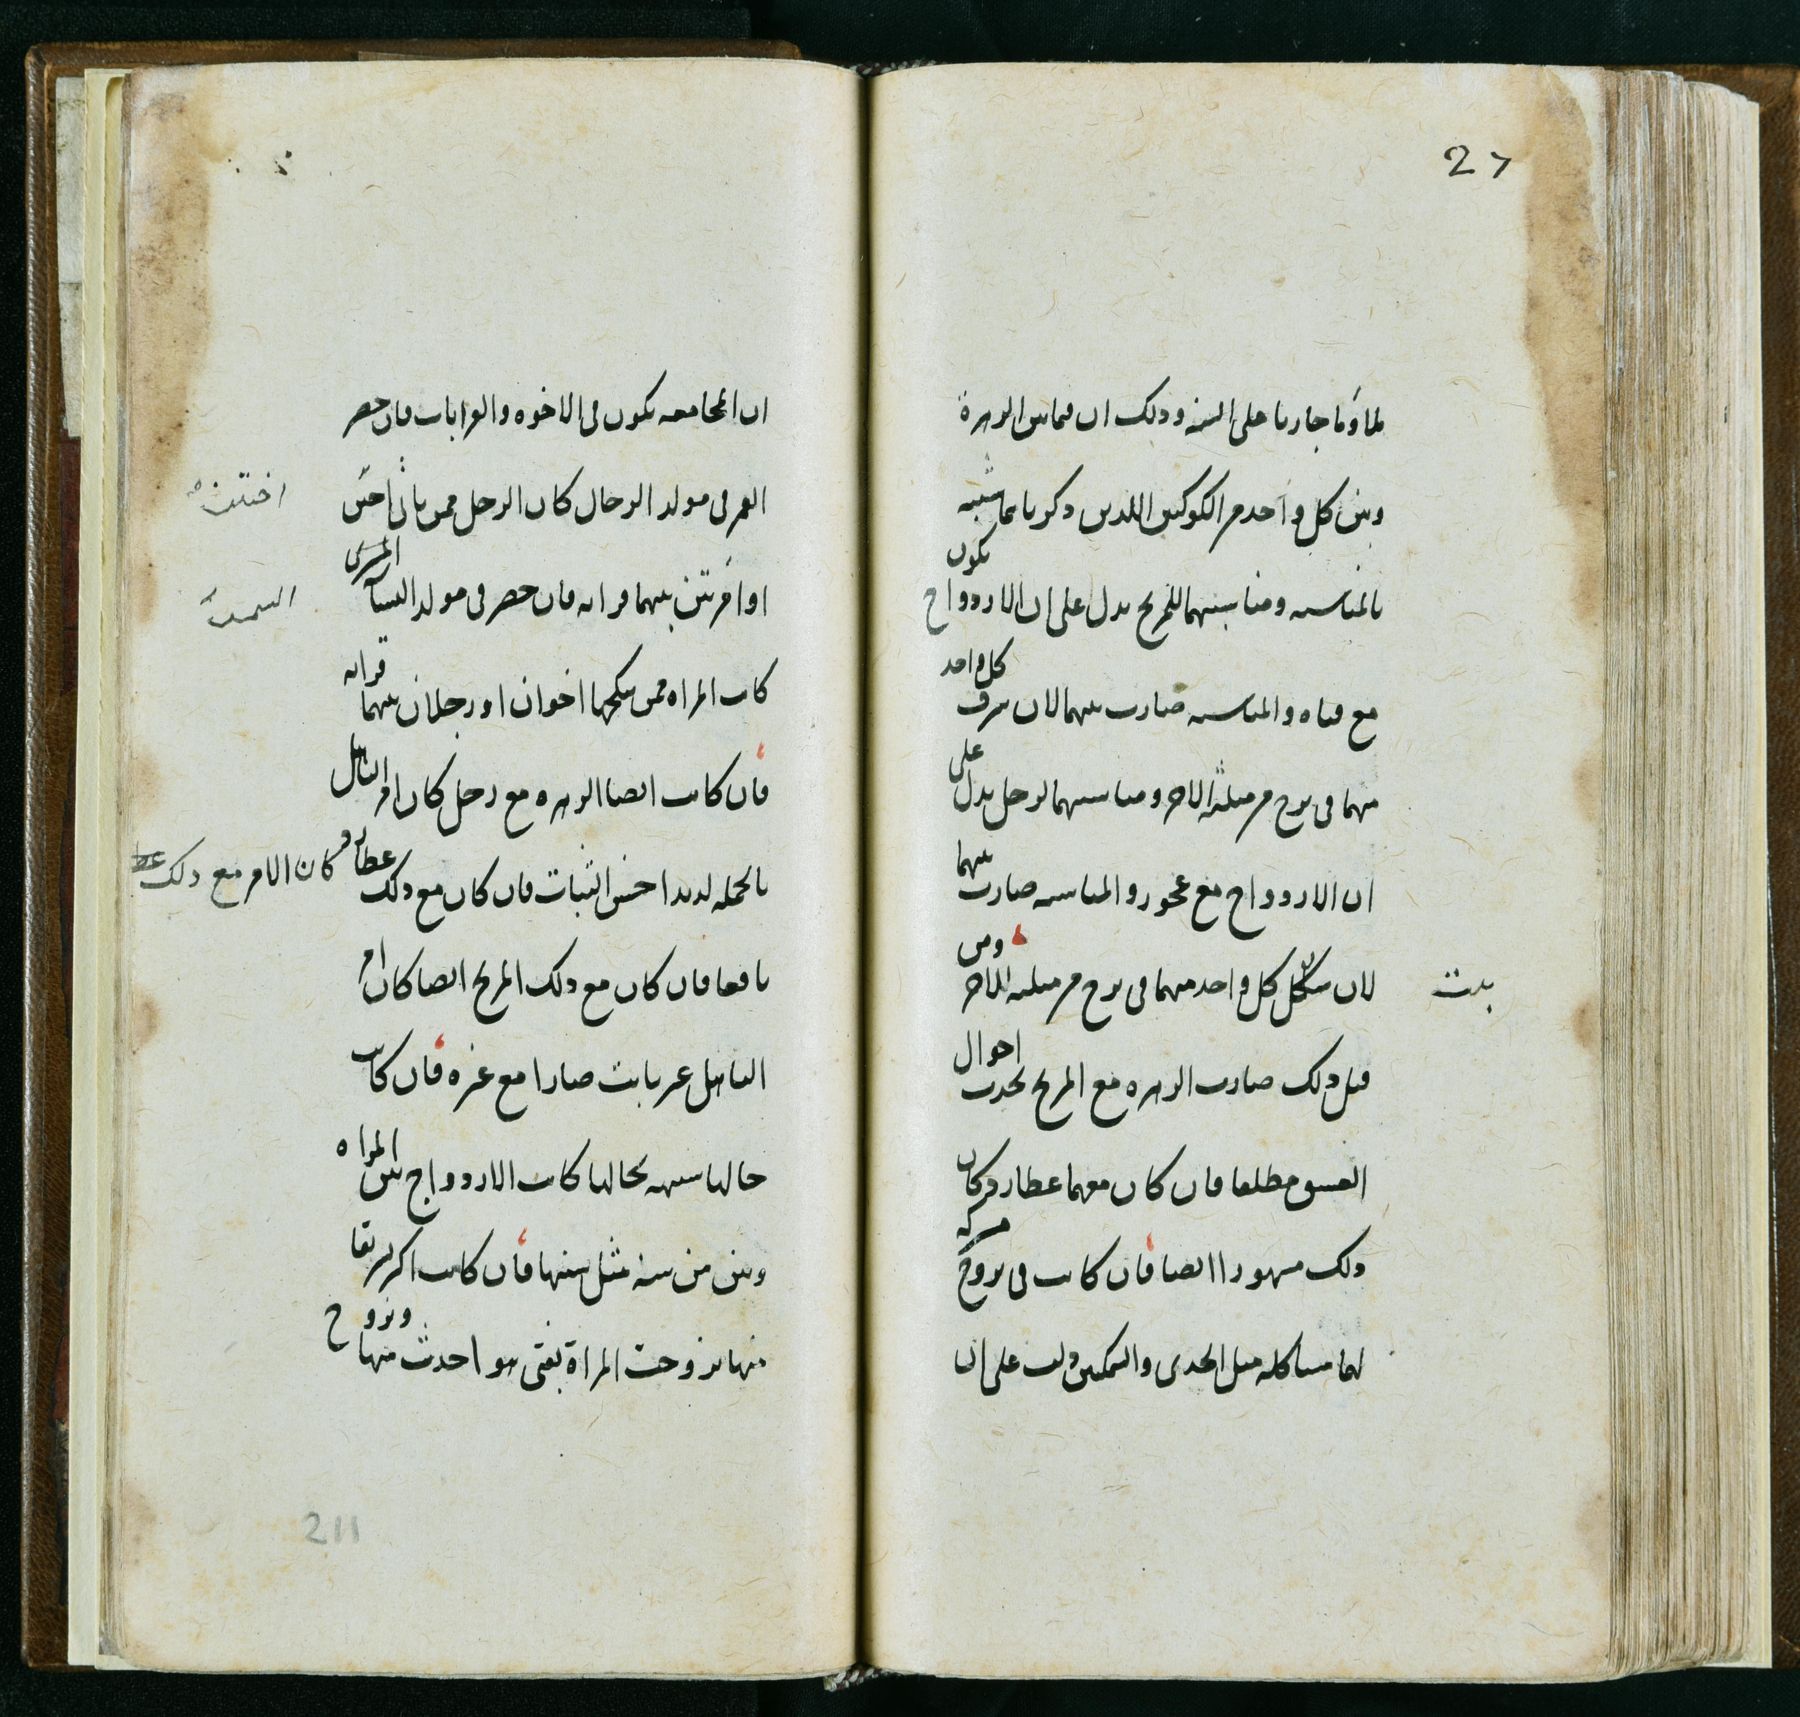 27
لما وما جاريا على السنه ودلك ان فيما بين الزهرة
وبين كل واحد من الكوكبين اللدين دكرنا مما شبيه
بالمناسبه ومناسبتهما للمريخ يدل على ان الازدواج يكون
مع فتاه والمناسبه صارت بينهما لان شرف كل واحد
منهما فى برج من مثلثة الاخر ومناسبتهما لزحل يدل على
ان الازدواج مع عجوز والمناسبه صارت بينهما
لان شكل كل واحد منهما فى برج من مثلثه الاخر ومن
بيت
قبل دلك صارت الزهره مع المريخ تحدث احوال
العشق مطلقا فان كان معهما عطارد كان
دلك مشهورا ايضا فان كانت فى بروج مشتركه
لهما مشاكله مثل الجدى والسمكتين دلت على ان
ان المجامعه تكون فى الاخوه والقرابات فان حضر
القمر فى مولد الرجال كان الرجل ممن ياتى اختين
اختين
او امرتين بينهما قرابه فان حضر فى مولد النسآ المشترى
كانت المراه ممن ينكحها اخوان او رجلان بينهما قرابه
فان كانت ايضا الزهره مع زحل كان امر التاهل
بالجمله لديدا حسن الثبات فان كان مع دلك عطارد
كان الامر مع دلك
نافعا فان كان مع دلك المريخ ايضا كان امر
التاهل غير ثابت صارا مع غيره فان كانت
حالها شبيهه بحالها كانت الازدواج بين المراه
وبين من سنه مثل سنها فان كانت اكثر تشريقا
منها تزوجت المراة بفتى هو احدث منها وتزوج
211